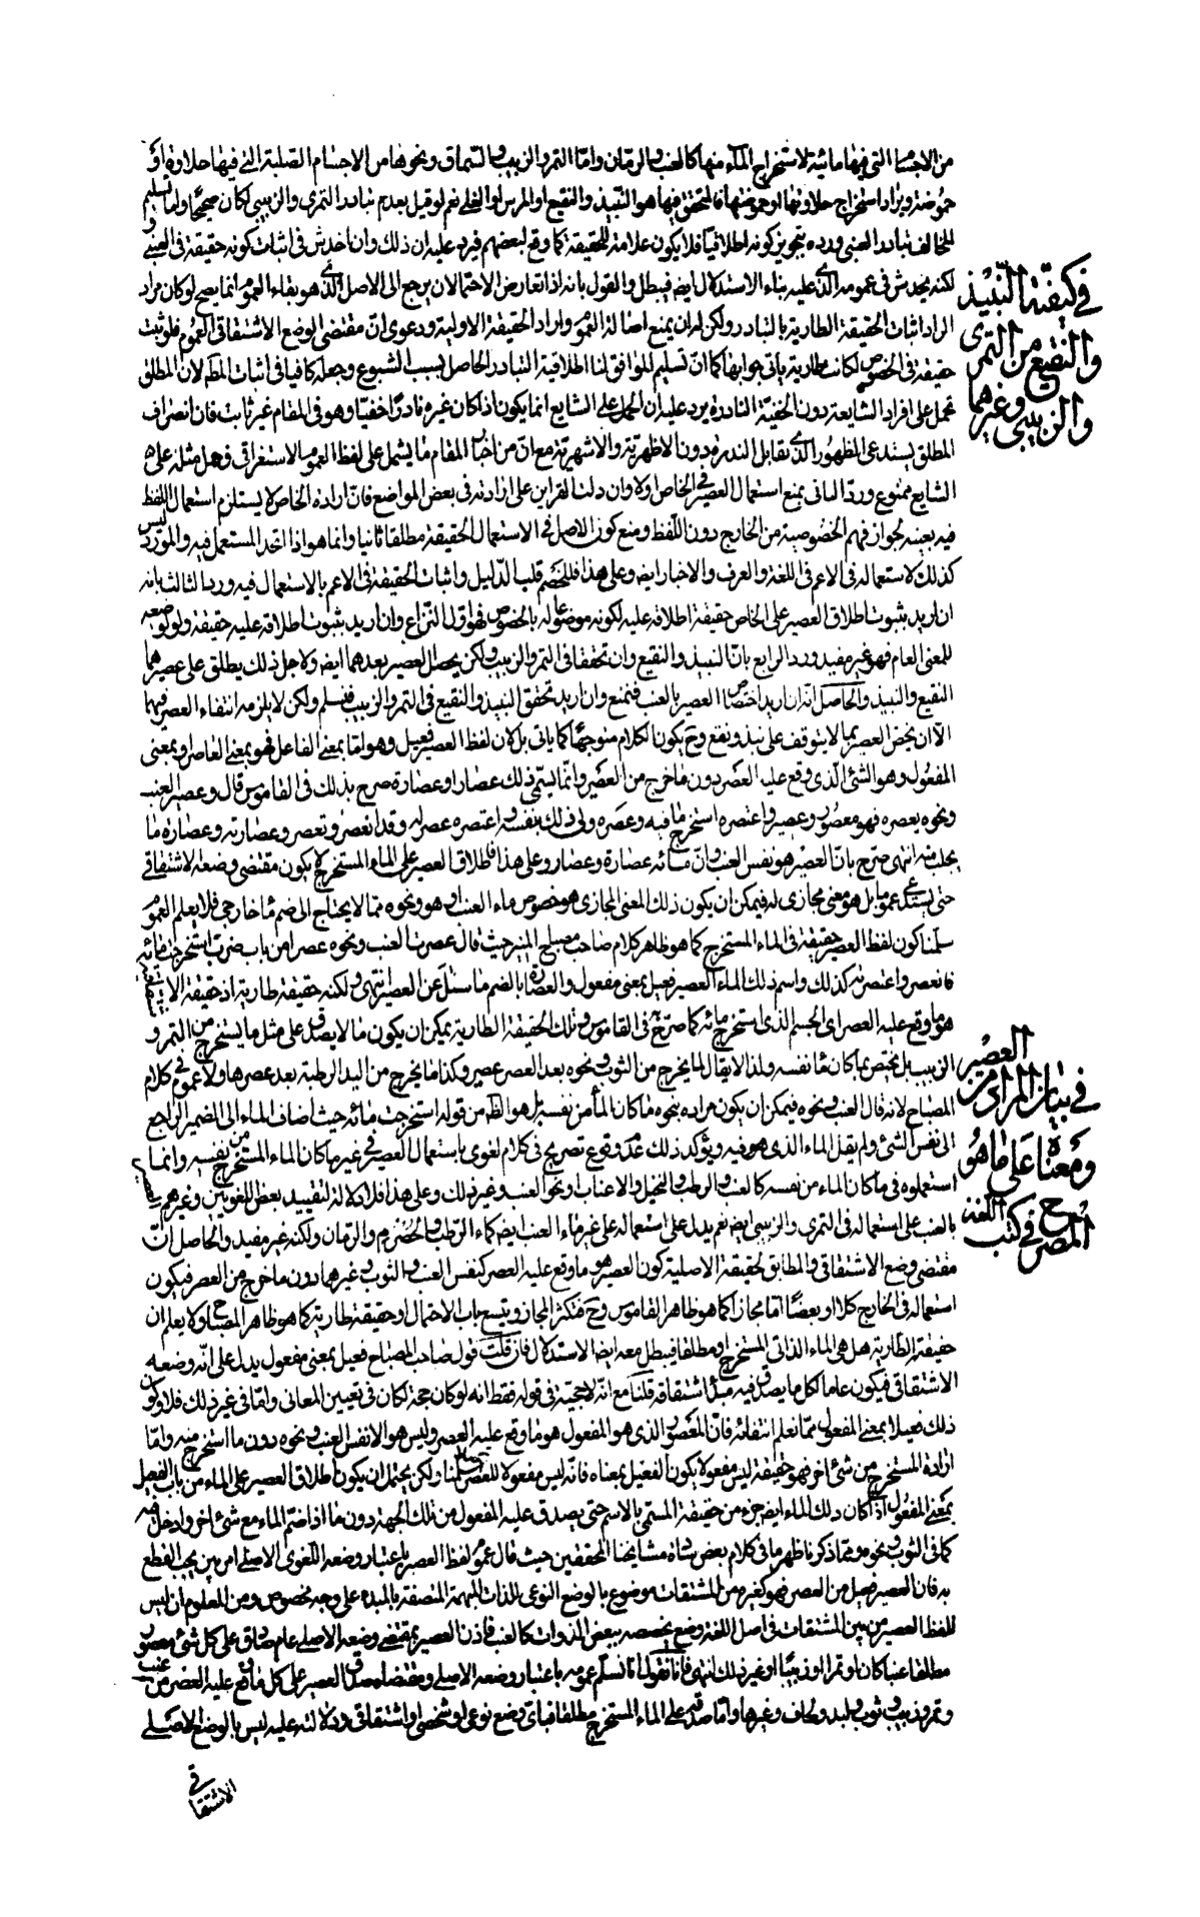 من الاجسام التي فيها مائية لاستخراج الماء منها كالعنب والرمان واما التمر والزبيب والسماق ونحوها من الاجسام الصلبة التي فيها حلاوة او
حموضة ويراد استخراج حلاوتها او حموضتها فالمتحقق فيها هو النبيذ والنقيع او المرس او الغلي نعم لو قيل بعدم تبادر التمري والزبيبي لكان صحيحا واما تسليم
المخالف تبادر العنبي ورده بتجويز كونه اطلاقيا فلا يكون علامة للحقيقة كما وقع لبعضهم فيرد عليه ان ذلك وان اخدش في اثبات كونه حقيقة في العنبي
لكنه يخدش في عمومه الذي عليه بناء الاستدلال ايض فيبطل والقول بانه اذا تعارض الاحتمالان يرجع الى الاصل الذي هو بقاء العموم انما يصح لو كان مراد
الراد اثبات الحقيقة الطارية بالتبادر ولكن له ان يمنع اصالة العموم واراد الحقيقة الاولية ودعوى ان مقتضى الوضع الاشتقاقي العموم فلو ثبت
في كيفية النبيذ
والنقيع من التمري
والزبيبي وغيرهما
حقيقة في الخصوص لكانت طارية ياتي جوابها كما ان تسليم الموافق لنا اطلاقية التبادر الحاصل بسبب الشيوع وجعله كافيا في اثبات المط لان المطلق
يحمل على افراد الشايعة دون الخفية النادرة يرد عليه ان الحمل على الشايع انما يكون اذا كان غيره نادرا خفيا وهو في المقام غير ثابت فان انصراف
المطلق يستدعي الظهور الذي تقابل الندرة دون الاظهرية والاشهرية مع ان من اخبار المقام ما يشمل على لفظ العموم الاستغراقي وحمل مثله على
الشايع ممنوع ورد الثاني بمنع استعمال العصير في الخاص اولا وان دلت القراين على ارادته في بعض المواضع فان ارادة الخاص لا يستلزم استعمال اللفظ
فيه بعينه لجواز فهم الخصوصية من الخارج دون اللفظ ومنع كون الاصل في الاستعمال الحقيقة مطلقا ثانيا وانما هو اذا اتحد المستعمل فيه والمورد ليس
كذلك لاستعماله في الاعم في اللغة والعرف والاخبار ايض وعلى هذا فللخصم قلب الدليل واثبات الحقيقة في الاعم بالاستعمال فيه ورد الثالث بانه
ان اريد بثبوت اطلاق العصير على الخاص حقيقة اطلاقه عليه لكونه موضوعا له بالخصوص فهو اول النزاع وان اريد بثبوت اطلاقه عليه حقيقة ولو لوضعه
للمعنى العام فهو غير مفيد ورد الرابع بان النبيذ والنقيع وان تحققا في التمر والزبيب ولكن يحصل العصير بعدهما ايض ولاجل ذلك يطلق على عصيرهما
النقيع والنبيذ والحاصل انه ان اريد اختصاص العصير بالعنب فنمنع وان اريد تحقق النبيذ والنقيع في التمر والزبيب فنسلم ولكن لا يلزمه انتفاء العصر فيهما
الا ان يخص العصير بما لا يتوقف على نبذ ونقع وح يكون الكلام متوجها كما ياتي بل كان لفظ العصير فعيل وهو اما بمعنى الفاعل فهو بمعنى العاصر او بمعنى
المفعول وهو الشئ الذي وقع عليه العصر دون ما خرج من العصير وانما يسمى ذلك عصارا وعصارة صرح بذلك في القاموس قال وعصر العنب
ونحوه يعصره فهو معصور وعصير واعتصره استخرج ما فيه وعصره ولى ذلك بنفسه واعتصره عصر له وقد انعصر وتعصر وعصارته وعصاره ما
يحلب منه انتهى صرح بان العصير هو نفس العنب وان مائه عصارة وعصار وعلى هذا فاطلاق العصير على الماء المستخرج لا يكون مقتضى وضعه الاشتقاقي
حتى يستدعي عموما بل هو معنى مجازي له فيمكن ان يكون ذلك المعنى المجازي هو خصوص ماء العنب او هو ونحوه مما لا يحتاج الى ضم ماء خارجي فلا يعلم العموم
سلمنا كون لفظ العصير حقيقة في الماء المستخرج كما هو ظاهر كلام صاحب مصباح المنير حيث قال عصرت العنب ونحوه عصرا من باب ضرب استخرجت مائه
فانعصر واعتصرته كذلك واسم ذلك الماء العصير فعيل بمعنى مفعول والعصارة بالضم ما سال عن العصر انتهى ولكنه حقيقة طارية اذ حقيقة الاشتقاقية
هو ما وقع عليه العصر اي الجسم الذي استخرج مائه كما صرح في القاموس وتلك الحقيقة الطارية يمكن ان يكون ما لا يصدق على مثل ما يستخرج من التمر و
الزبيب بل يختص بما كان ماء نفسه ولذا لا يقال لما يخرج من الثوب ونحوه بعد العصر عصير وكذا ما يخرج من اليد الرطبة بعد عصرها ولا عموم في كلام
العصير
في بيان المراد من
ومعناه على ما هو
المصرح في كتب اللغة
المصباح لانه قال العنب ونحوه فيمكن ان يكون مراده بنحوه ما كان الماء من نفسه بل هو الظ من قوله استخرجت مائه حيث اضاف الماء الى الضمير الراجع
الى نفس الشئ ولم يقل الماء الذي هو فيه ويؤكد ذلك عدم وقوع تصريح في كلام لغوي باستعمال العصير في غير ما كان الماء المستخرج من نفسه وانما
استعملوه في ما كان الماء من نفسه كالعنب والرطب والنخيل والاعناب او نحو العنب وغير ذلك وعلى هذا فلا دلالة لتقييد بعض اللغويين وغيرهم
بالعنب على استعماله في التمري والزبيبي ايض نعم يدل على استعماله على غير ماء العنب ايض كماء الرطب والحصرم والرمان ولكنه غير مفيد والحاصل ان
مقتضى وضع الاشتقاقي والمطابق لحقيقة الاصلية كون العصير هو ما وقع عليه العصر كنفس العنب والثوب وغيرها دون ما خرج من العصر فيكون
استعماله في الخارج كلا او بعضا اما مجازا كما هو ظاهر القاموس وح فتكثر المجاز ويتسع باب الاحتمال او حقيقة طارية كما هو ظاهر المصباح ولا يعلم ان
حقيقة الطارية هل هي الماء الذاتي المستخرج او مطلقا فيبطل معه ايض الاستدلال فان قلت قول صاحب المصباح فعيل بمعنى مفعول يدل على انه وضعه
الاشتقاقي فيكون عاما لكل ما يصدق فيه مبدأ اشتقاقه قلنا مع انه لا حجية في قوله فقط انه لو كان حجة لكان في تعيين المعاني واما في غير ذلك فلا وكون
ذلك فعيلا بمعنى المفعول مما نعلم انتفائه فان المعصور الذي هو المفعول هو ما وقع عليه العصر وليس هو الا نفس العنب ونحوه دون ما استخرج منه واما
ارادة المستخرج من شئ اخر فهو حقيقة ليس مفعولا يكون الفعيل بمعناه فانه ليس مفعولا للعصر سلمنا ولكن يحتمل ان يكون اطلاق العصير على الماء من باب الفعيل
بمعنى المفعول اذا كان ذلك الماء ايض جزء من حقيقة المسمى بالاسم حتى يصدق عليه المفعول من تلك الجهة دون ما اذا ضم الماء مع شئ اخر وادخل فيه
كما في الثوب ونحوه ومما ذكرنا ظهر ما في كلام بعض سادة مشايخنا المحققين حيث قال عموم لفظ العصير باعتبار وضعه اللغوي الاصلي امر بين يجب القطع
به فان العصير فعيل من العصر فهو كغيره من المشتقات موضوع بالوضع النوعي للذات المبهمة المتصفة بالمبدء على وجه مخصوص ومن المعلوم ان ليس
للفظ العصير من بين المشتقات في اصل اللغة وضع يخصصه ببعض الذوات كالعنب فاذن العصير بمقتضى وضعه الاصلي عام صادق على كل شئ معصور
مطلقا عنبا كان او تمرا او زبيبا او غير ذلك انتهى فانا نقول انا نسلم عمومه باعتبار وضعه الاصلي ومقتضاه صدق العصير على كل ما وقع عليه العصر من عنب
وتمر وزبيب وثوب ولبد ولحاف وغيرها واما صدقه على الماء المستخرج مطلقا فباي وضع نوعي او شخصي او اشتقاقي ودلالته عليه ليس بالوضع الاصلي
الاشتقاقي